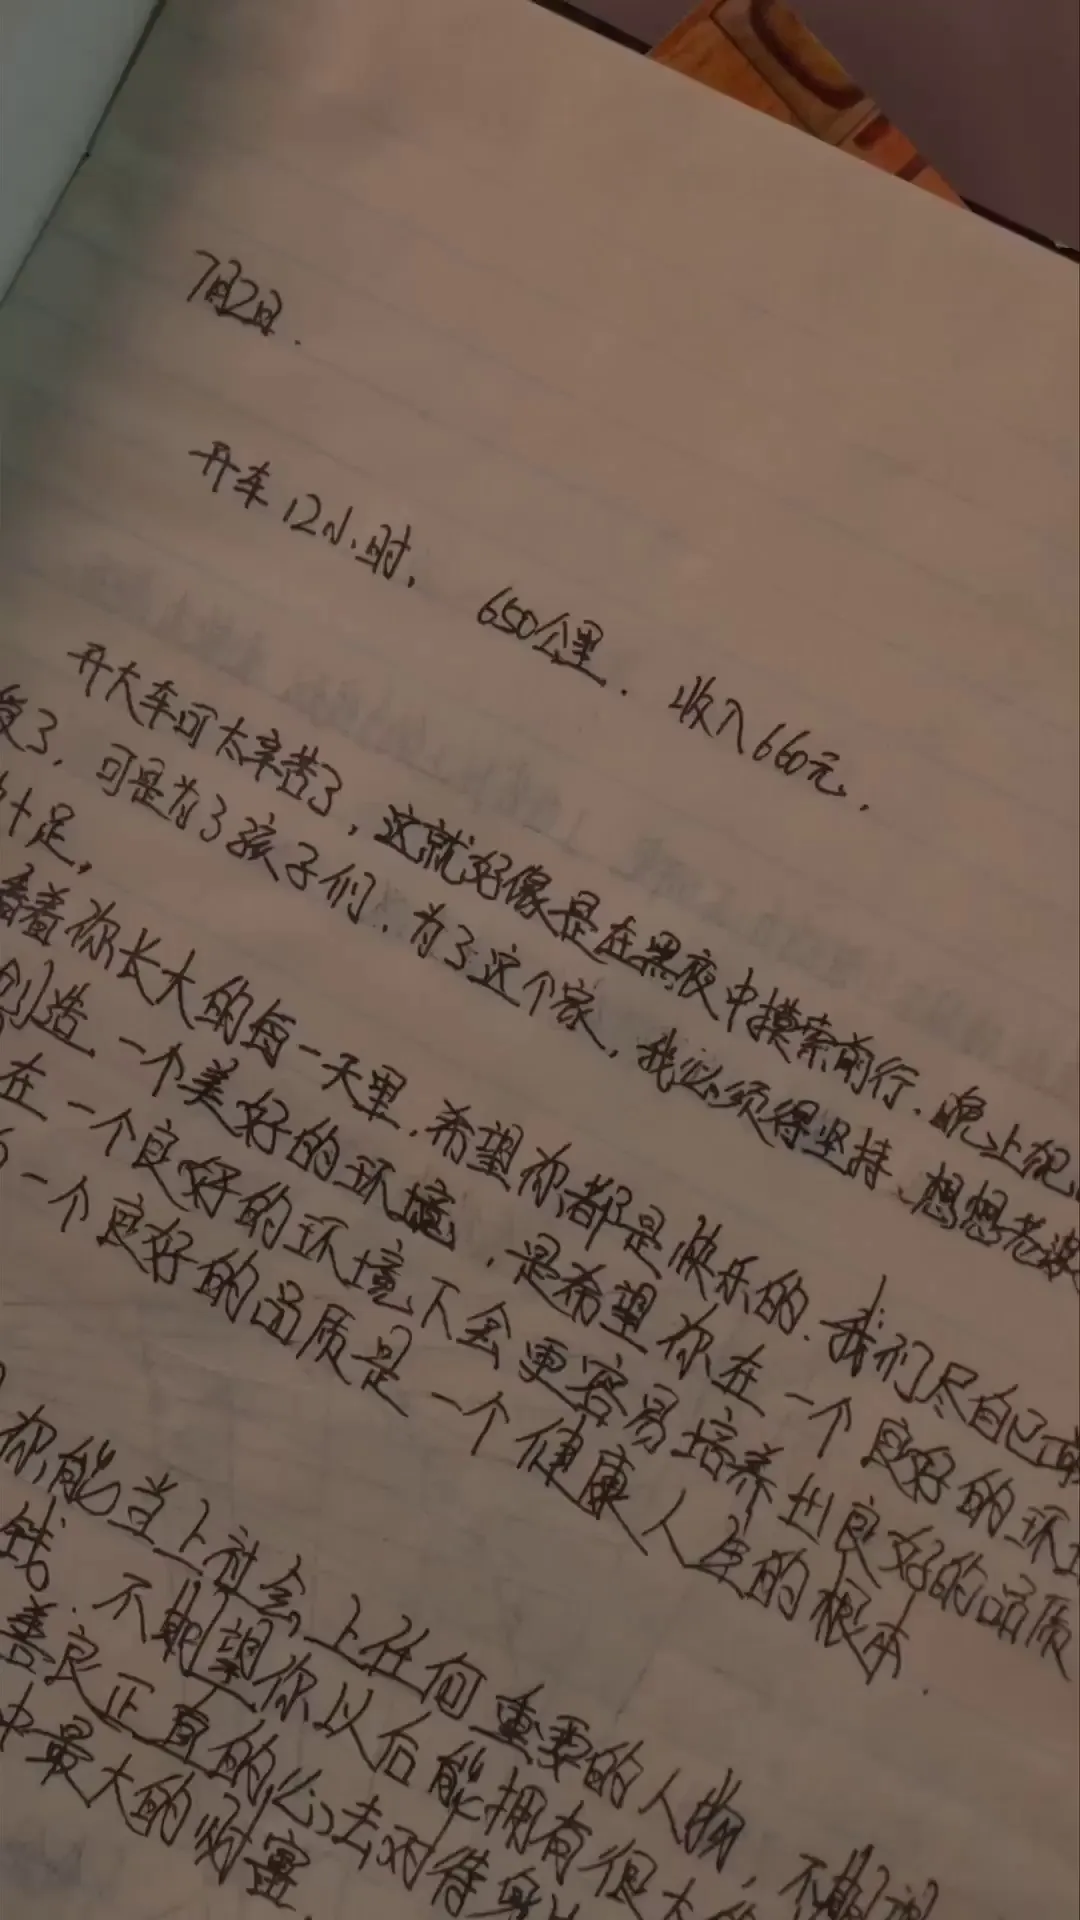 7月2日.
开车12小时, 650公里. 收入660元.
开大车可太辛苦了,这就好像是在黑夜中摸索前行.晚上
了,可是为了孩子们.为了这个家,我必须得坚持、想想老
十足,
看着你长大的每一天里.希望你都是快乐的.我们尽自己
创造一个美好的环境,是希望你在一个良好的环
在一个良好的环境下会更容易培养出良好的品质
一个良好的品质是一个健康人生的根本.
你能当上社会上任何重要的人物,不期望
钱.不期望你以后能拥有很大
善良正直的心去对待身
中最大的财富.